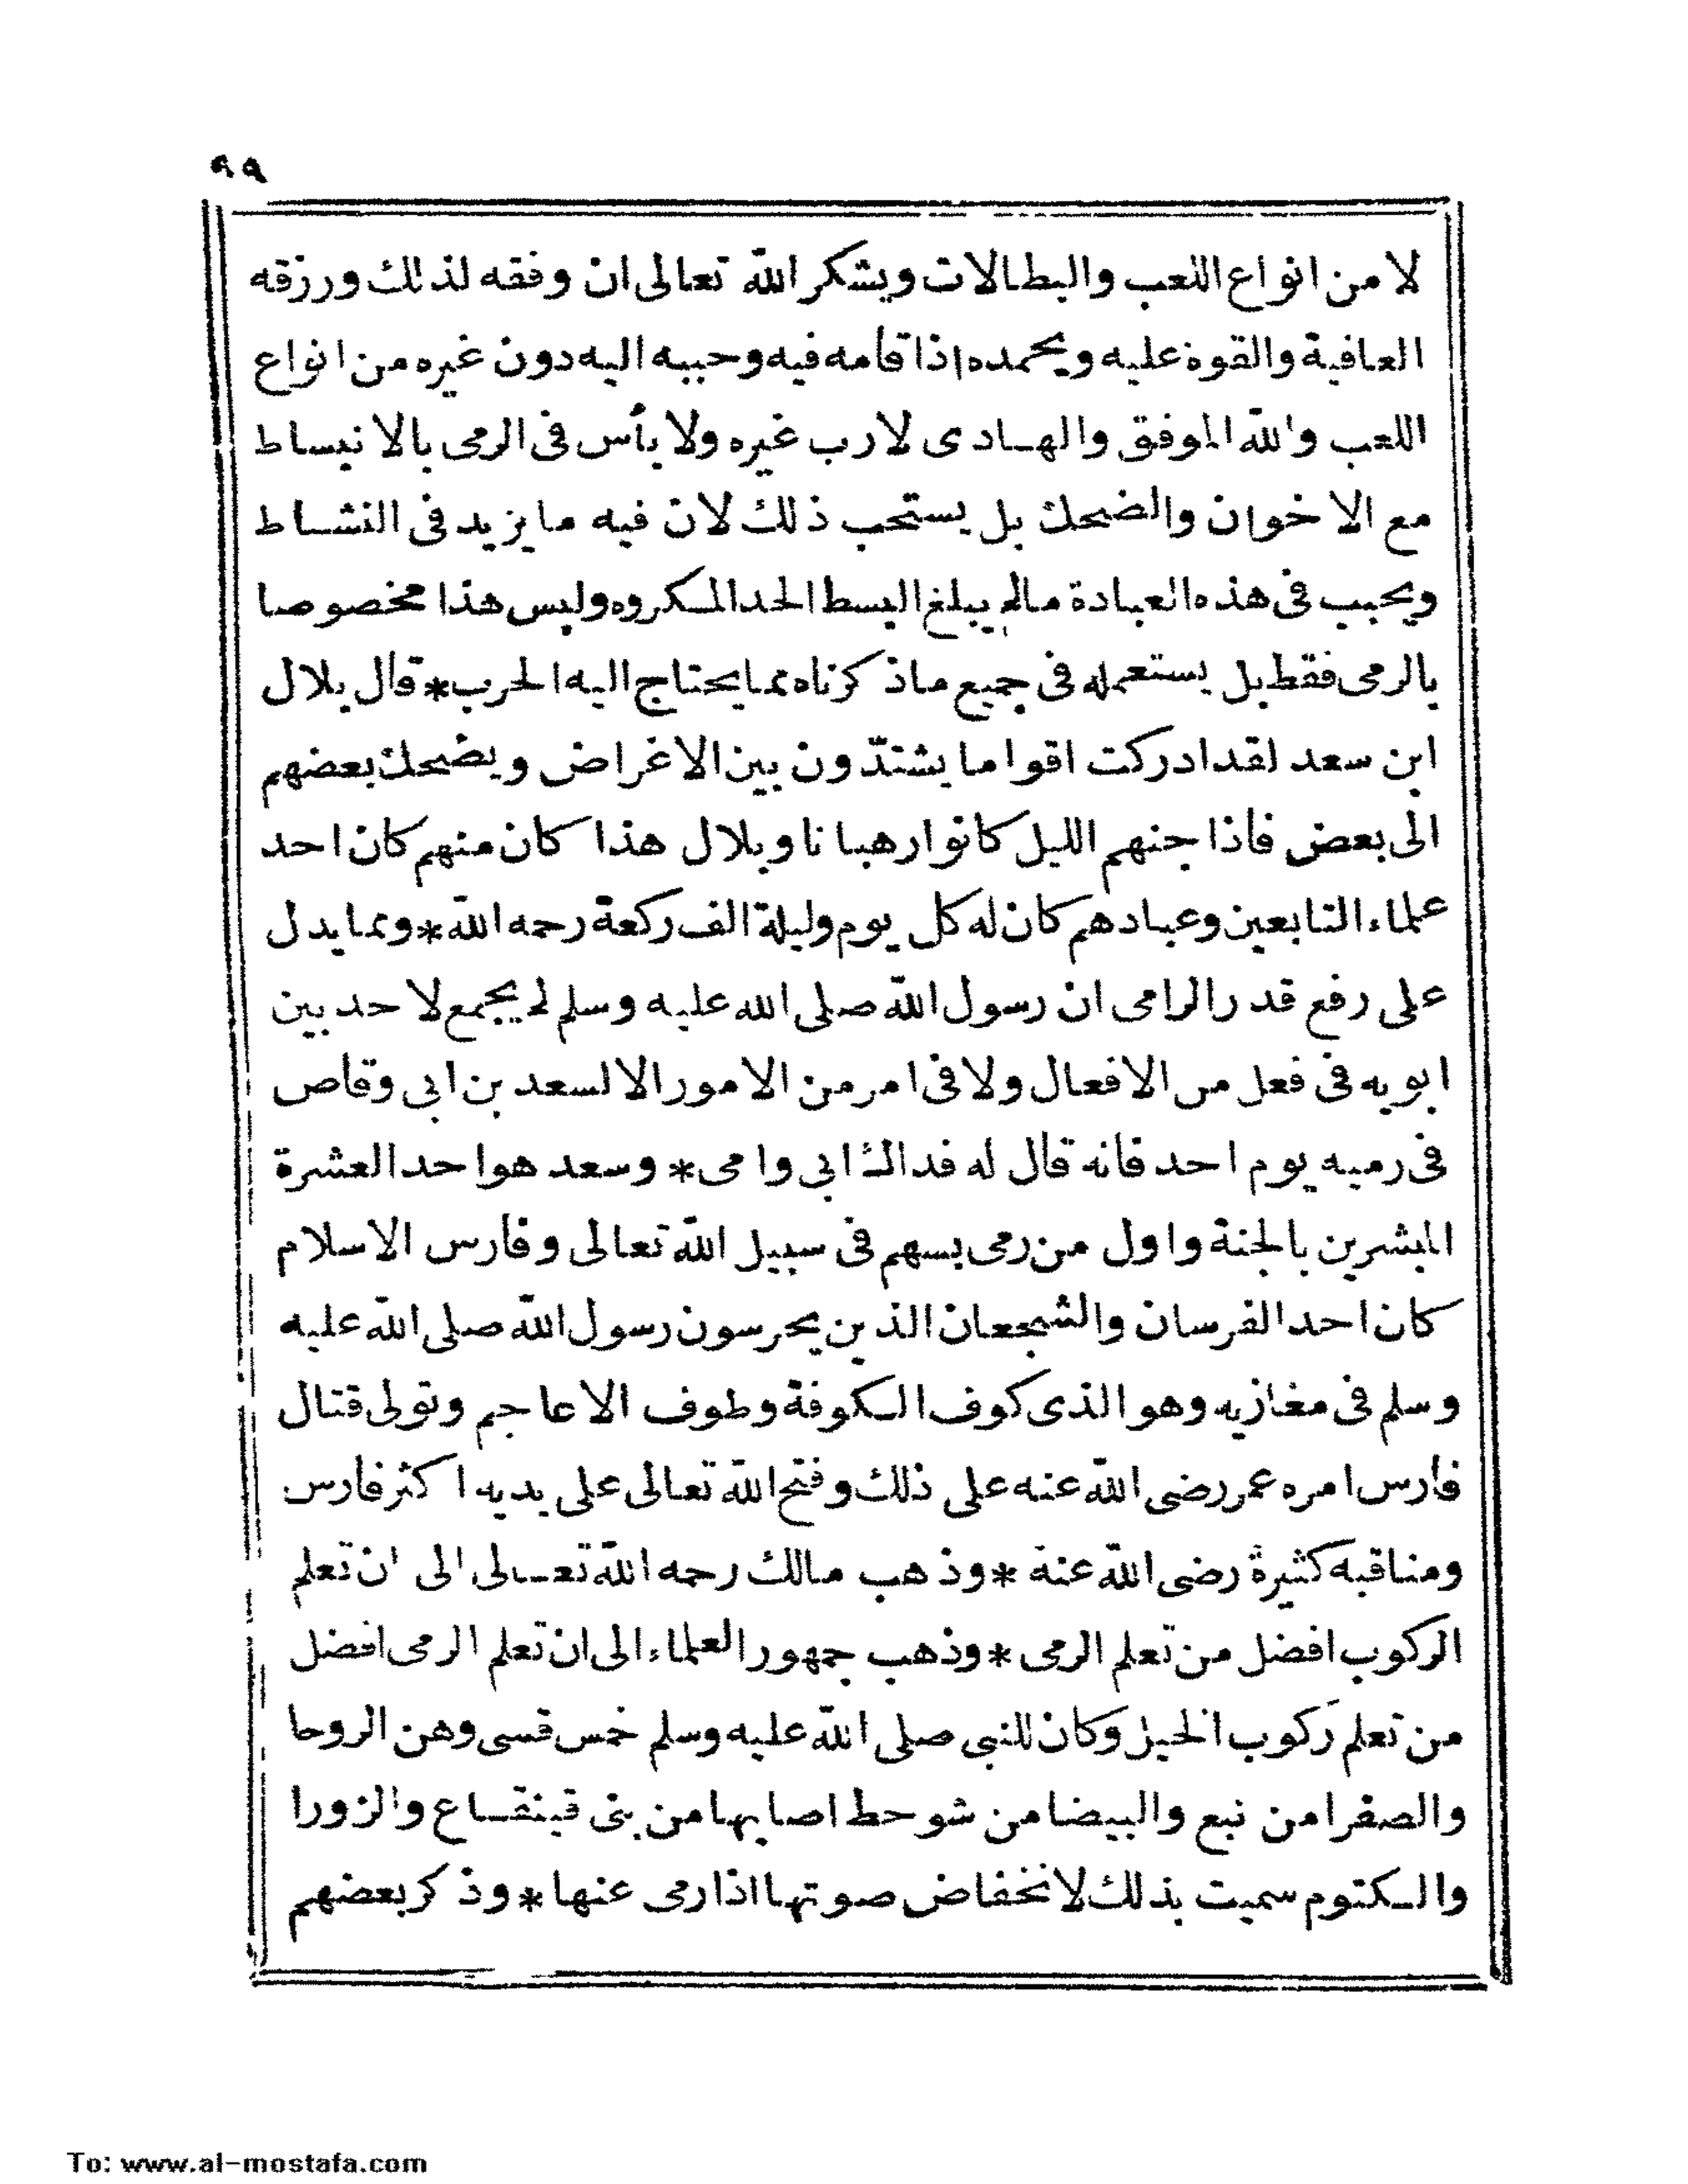 ٩٩
لا من انواع اللعب والبطالات ويشكر الله تعالى ان وفقه لذلك ورزقه
العافية والقوة عليه ويحمده اذا قامه فيه وحببه اليه دون غيره من انواع
اللعب والله الموفق والهادى لا رب غيره ولا بأس فى الرمى بالانبساط
مع الاخوان والضحك بل يستحب ذلك لان فيه ما يزيد فى النشاط
ويحبب فى هذه العبادة مالم يبلغ البسط الحد المكروه وليس هذا مخصوصا
بالرمى فقط بل يستعمله فى جميع ماذكرناه مما يحتاج اليه الحرب * قال بلال
ابن سعد لقد ادركت اقواما يشتدّون بين الاغراض ويضحك بعضهم
الى بعض فاذا جنهم الليل كانوا رهبانا وبلال هذا كان منهم كان احد
علماء التابعين وعبادهم كان له كل يوم وليلة الف ركعة رحمه الله * ومما يدل
على رفع قدر الرامى ان رسول الله صلى الله عليه وسلم لم يجمع لاحد بين
ابويه فى فعل من الافعال ولا فى امر من الامور الا لسعد بن ابى وقاص
فى رميه يوم احد فانه قال له فداك ابى وامى * وسعد هو احد العشرة
المبشرين بالجنة واول من رمى بسهم فى سبيل الله تعالى وفارس الاسلام
كان احد الفرسان والشجعان الذين يحرسون رسول الله صلى الله عليه
وسلم فى مغازيه وهو الذى كوف الكوفة وطوف الاعاجم وتولى قتال
فارس امره عمر رضى الله عنه على ذلك وفتح الله تعالى على يديه اكثر فارس
ومناقبه كثيرة رضى الله عنه * وذهب مالك رحمه الله تعالى الى ان تعلم
الركوب افضل من تعلم الرمى * وذهب جمهور العلماء الى ان تعلم الرمى افضل
من تعلم ركوب الخيل وكان للنبى صلى الله عليه وسلم خمس قسى وهن الروحا
والصفرا من نبع والبيضا من شوحط اصابها من بنى قينقاع والزورا
والكتوم سميت بذلك لانخفاض صوتها اذا رمى عنها * وذكر بعضهم
To: www.al-mostafa.com